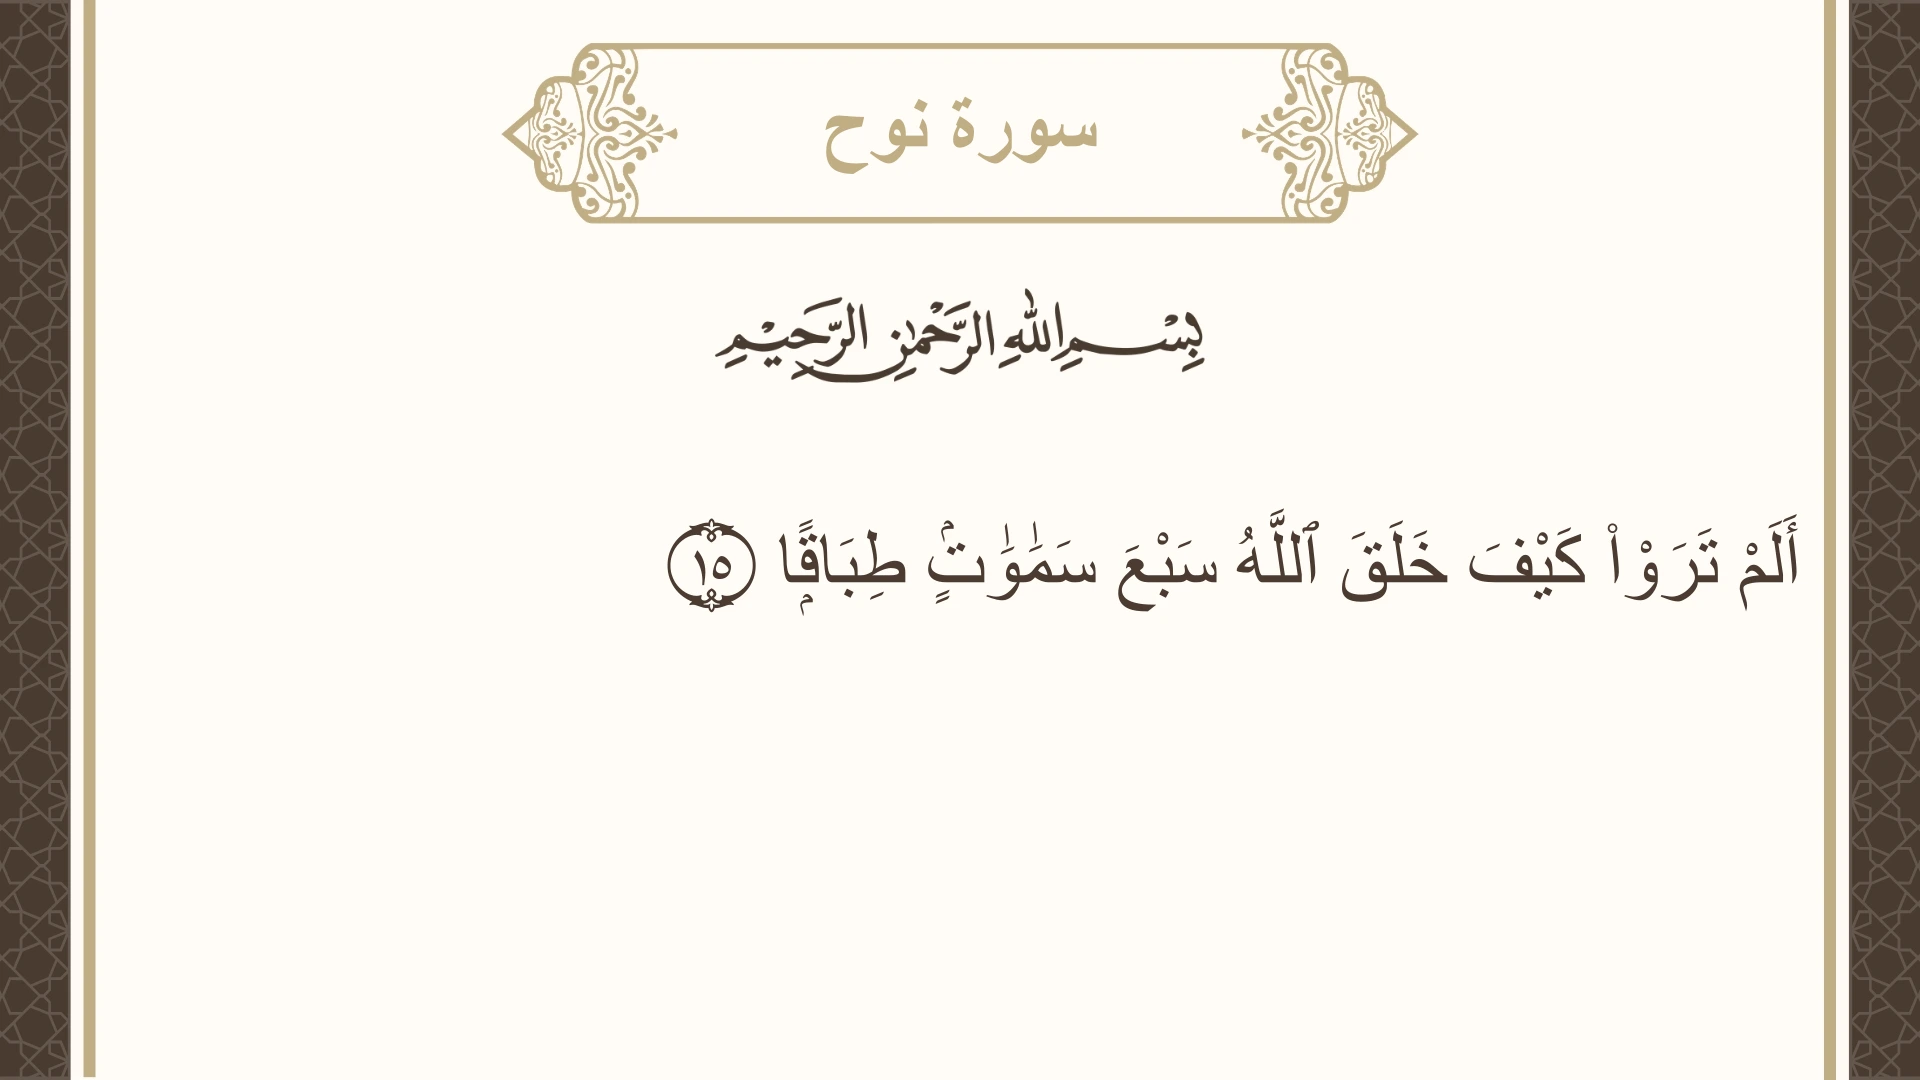 سورة نوح
بِسْمِ اللهِ الرَّحْمٰنِ الرَّحِيْمِ
أَلَمْ تَرَوْا۟ كَيْفَ خَلَقَ ٱللَّهُ سَبْعَ سَمَٰوَٰتٍۢ طِبَاقًۭا ١٥